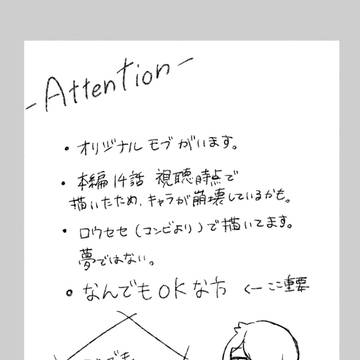 -Attention-
・オリジナルモブがいます。
・本編14話 視聴時点で
描いたため、キャラが崩壊しているかも。
・ロウセセ(コンビより)で描いてます。
夢ではない。
・なんでもOKな方 ←ここ重要